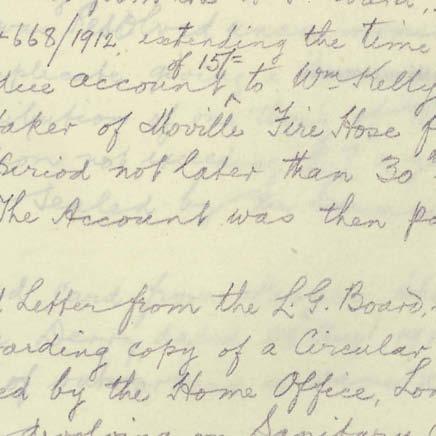 4668/1912 extending the time
of 15/=
duce account to Wm Kelly
taker of Moville Fire Hose f
Period not later than 30
The Account was then pa
Letter from the L. G. Board,
arding copy of a Circular
ed by the Home Office, Lon